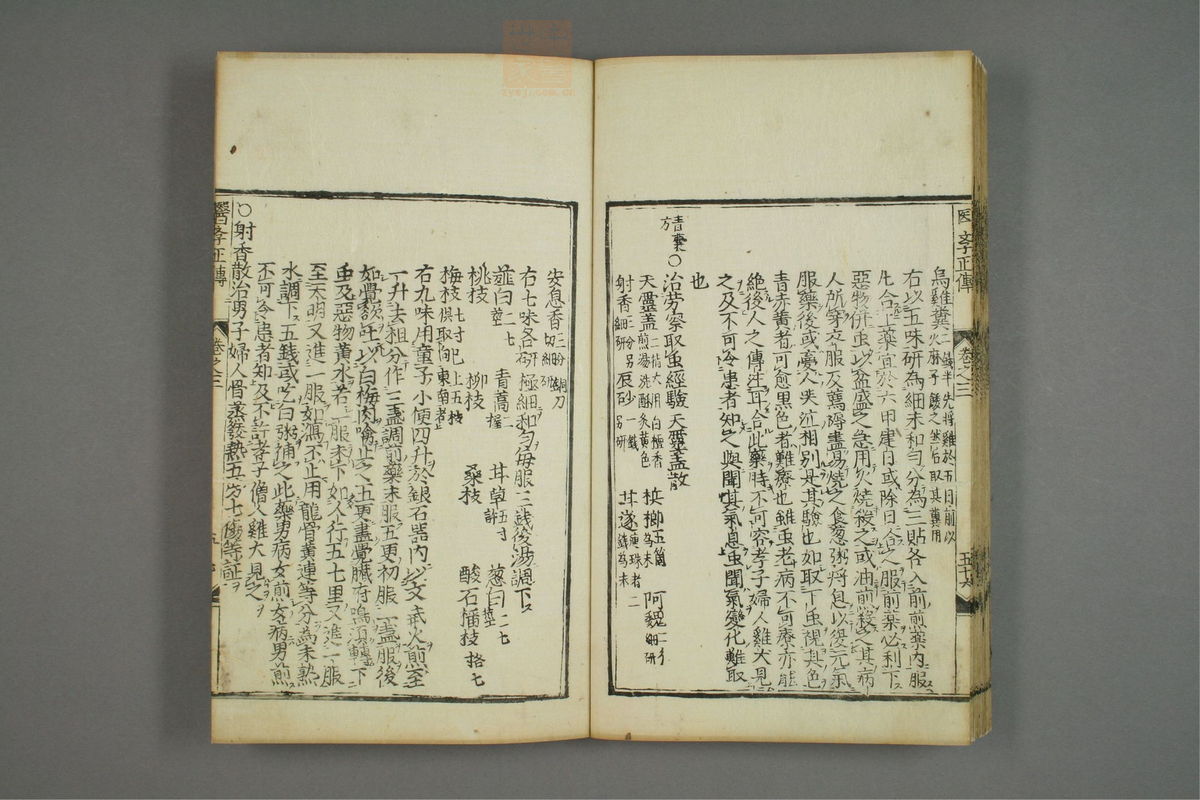 医李正傳 卷之三 五十六
烏雞糞二錢半先將雞於五日前以火麻子餧之然后取其糞用
右以五味研為細末和勻分為三貼各入前煎藥內服
凡合藥宜於六甲建日或除日合之服前藥必利下
惡物併虫以盆盛之急用火燒殺之或油煎殺之其病
人所穿衣服及薦褥盡易燒之食葱粥將息以復元氣
服藥後或夢人哭泣相別是其驗也如取下虫視其色
青赤黃者可愈黑色者難療也雖虫老病不可療亦能
絕後人之傳注耳合此藥時不可容孝子婦人雞犬見
之及不可令患者知之與聞其氣息虫聞氣變化難取
也
青囊方○治勞瘵取虫經驗天靈盖散
天靈盖二指大用白檀香煎湯洗酥灸黃色 梹榔五箇為末 阿魏二分細研
射香三分另細研 辰砂一錢另研 甘遂二錢為末
安息香三分銅刀切細研
右七味各研極細和勻每服三錢後湯調下
薤白二七莖 青蒿二握 甘草五寸許 葱白二七莖
桃枝 柳枝 桑枝 酸石榴枝
梅枝俱取向東南者上五枝
右九味用童子小便四升於銀石器內以文武火煎至
一升去粗分作三盞調前藥末服五更初服一盞服後
如覺欲吐以白梅肉噙止之五更盡覺臟府鳴須轉下
虫及惡物黃水若一服未下如人行五七里又進一服
至天明又進一服如瀉不止用龍骨黃連等分為末熟
水調下五錢或吃白粥補之此藥男病女煎女病男煎
不可令患者知及不許孝子僧人雞犬見之
○射香散治男子婦人骨蒸發熱五勞七傷等証
醫李正傳 卷之三